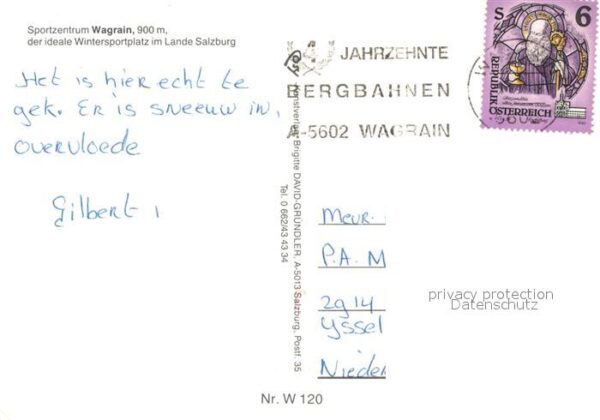 Sportzentrum Wagrain, 900 m,
der ideale Wintersportplatz im Lande Salzburg
Het is hier echt te
gek. Er is sneeuw in
overvloede
Gilbert
JAHRZEHNTE
BERGBAHNEN
A-5602 WAGRAIN
S 6
REPUBLIK
ÖSTERREICH
Kunstverlag Brigitte DAVID-GRÜNDLER, A-5013 Salzburg, Postf. 35
Tel. 0 662/43 43 34
Mevr.
P.A. M
2914
Yssel
Nieder
privacy protection
Datenschutz
Nr. W 120